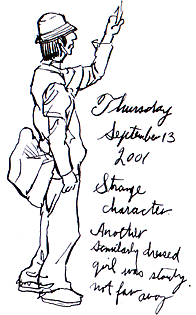 Thursday
September 13
2001
Strange
character.
Another
similarly dressed
girl was standing
not far away